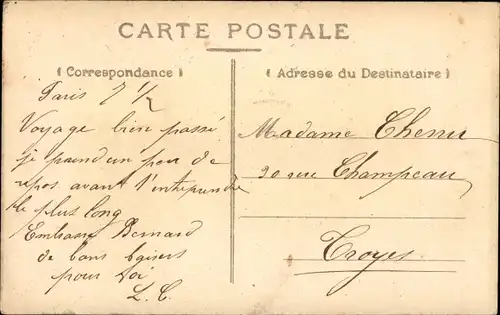 CARTE POSTALE
( Correspondance )
( Adresse du Destinataire )
Paris 7 1/2
Voyage bien passé
je prend un peu de
repos avant l'entreprendre
le plus long
Embrasse Bernard
de bons baisers
pour toi
L. C.
Madame Chenu
20 rue Champeau
Troyes